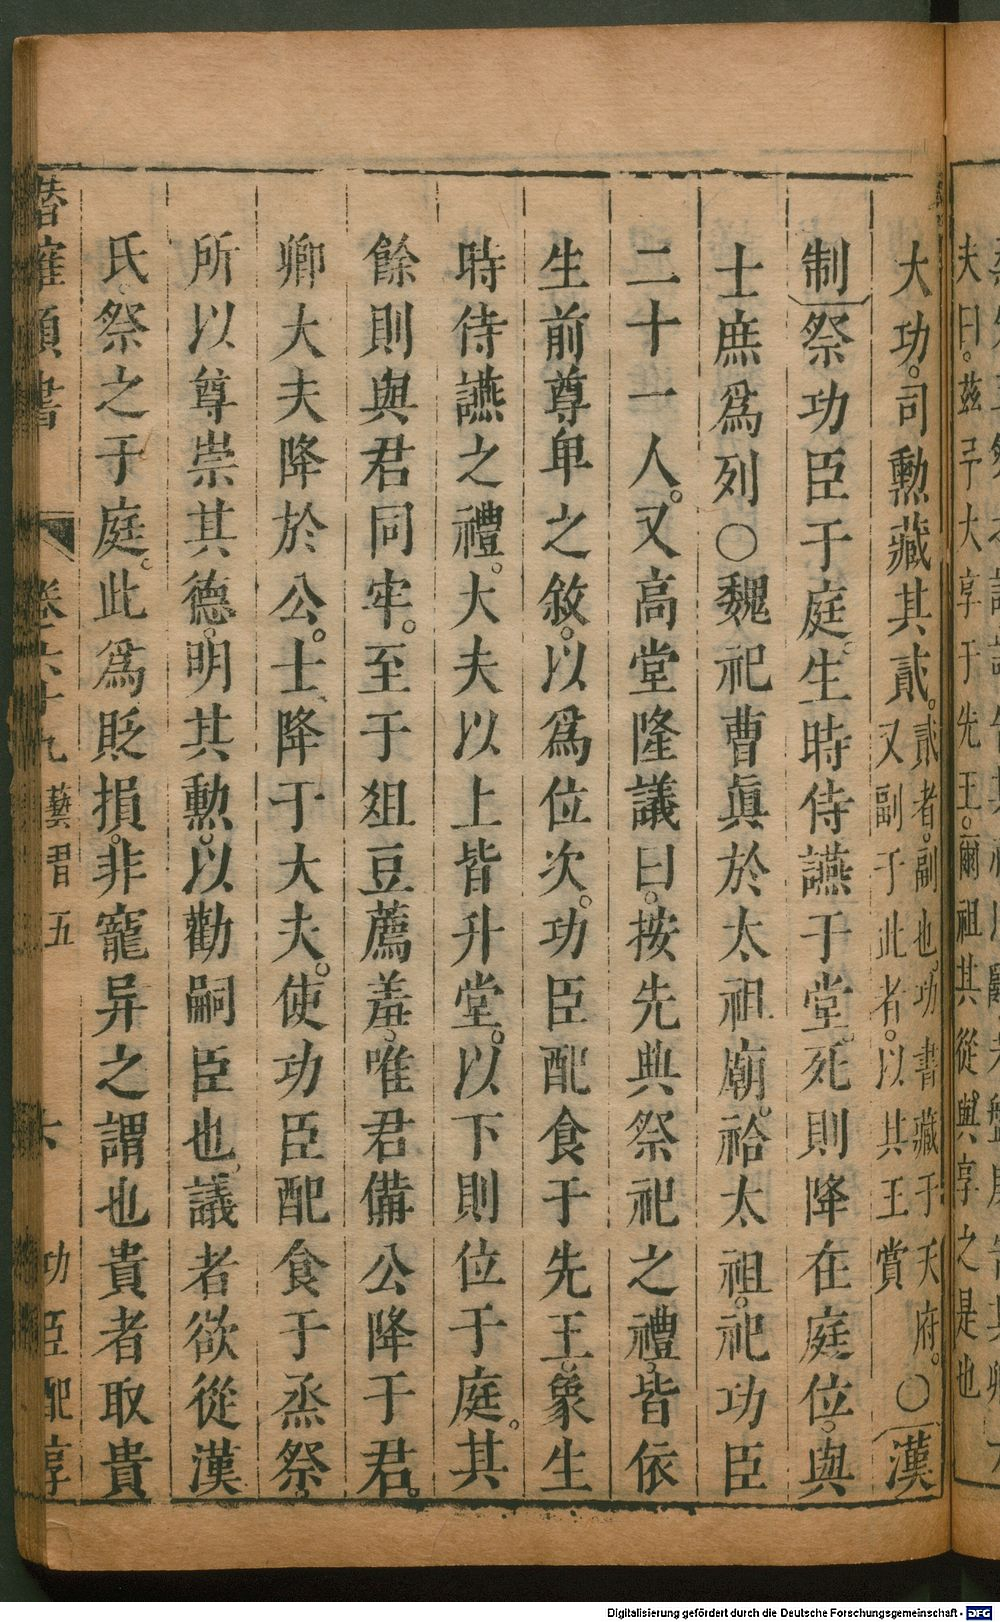 夫曰。茲予大享于先王。爾祖其從與享之是也
大功。司勳藏其貳。貳者。副也。功書藏于天府。又副于此者。以其王賞〇漢
制祭功臣于庭。生時侍讌于堂。死則降在庭位。與
士庶爲列〇魏祀曹眞於太祖廟。祫太祖。祀功臣
二十一人。又高堂隆議曰。按先典祭祀之禮。皆依
生前尊卑之敘。以爲位次。功臣配食于先王。象生
時侍讌之禮。大夫以上皆升堂。以下則位于庭。其
餘則與君同牢。至于俎豆薦羞。唯君備公降于君。
卿大夫降於公。士降于大夫。使功臣配食于烝祭。
所以尊崇其德。明其勳。以勸嗣臣也。議者欲從漢
氏祭之于庭。此爲貶損。非寵异之謂也貴者取貴
潛確類書 卷六十九 藝習五 六 功臣配享
Digitalisierung gefördert durch die Deutsche Forschungsgemeinschaft - DFG